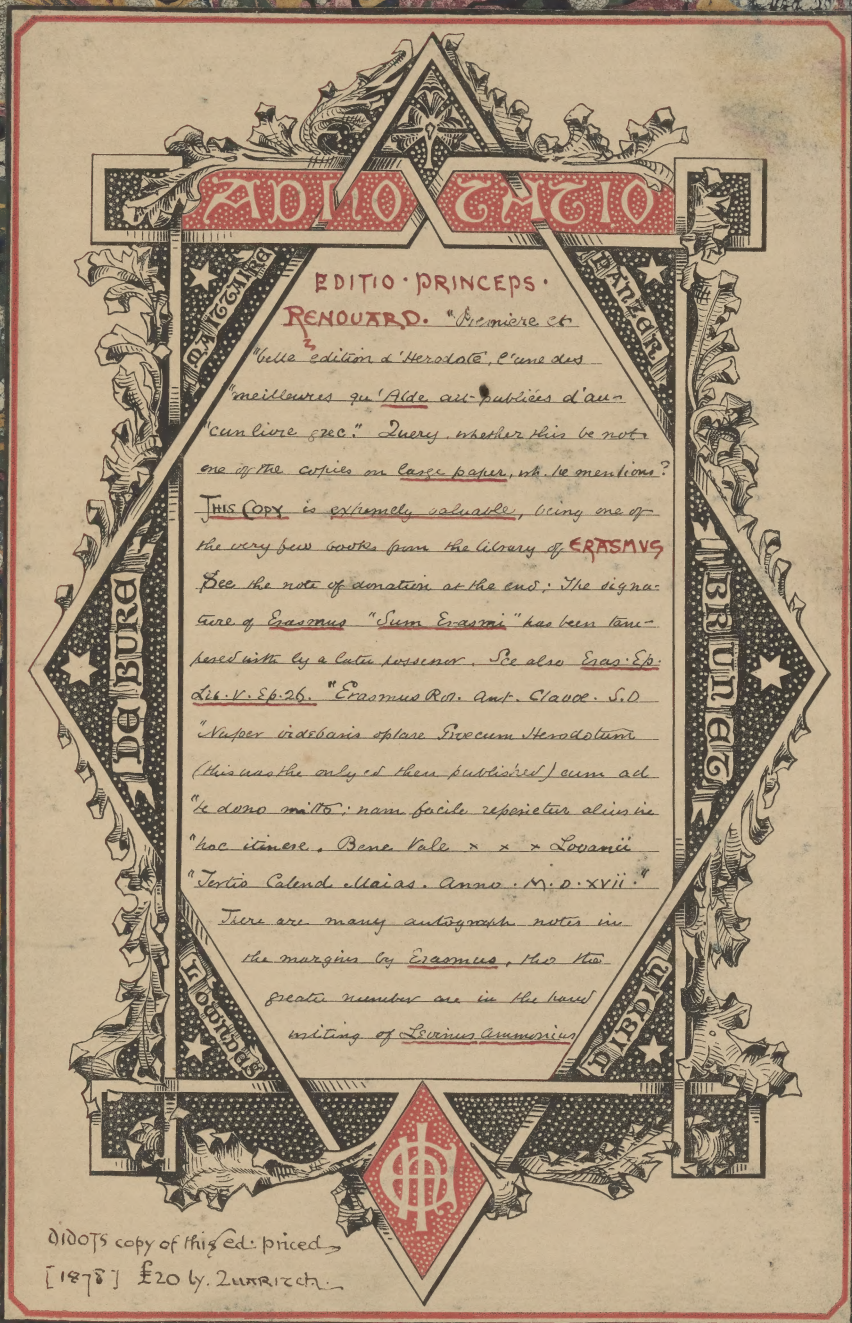 ADNOTATIO
MAITTAIRE
PANZER
DE BURE
BRUNET
LOWNDES
DIBDIN
EDITIO · PRINCEPS ·
RENOUARD. "Première et
"belle edition d'Herodote, l'une des
"meilleures qu'Alde ait publiées d'au-
"cun livre grec." Query, whether this be not
one of the copies on large paper, wh. he mentions?
THIS COPY is extremely valuable, being one of
the very few books from the library of ERASMVS
See the note of donation at the end; The signa-
ture of Erasmus "Sum Erasmi" has been tam-
pered with by a later possessor. See also Eras. Ep.
Lib. V. Ep. 26. "Erasmus Rot. Ant. Clavae. S.D
"Nuper videbaris optare Graecum Herodotum
(this was the only ed then published) eum ad
"te dono mitto; nam facile reperietur alius in
"hoc itinere. Bene Vale x x x Lovanii
"Tertio Calend Maias. Anno. M.D.XVII."
There are many autograph notes in
the margins by Erasmus, tho the
greater number are in the hand
writing of Levinus Ammonius
DIDOTS copy of this ed. priced
[1878] £20 by. QUARITCH.